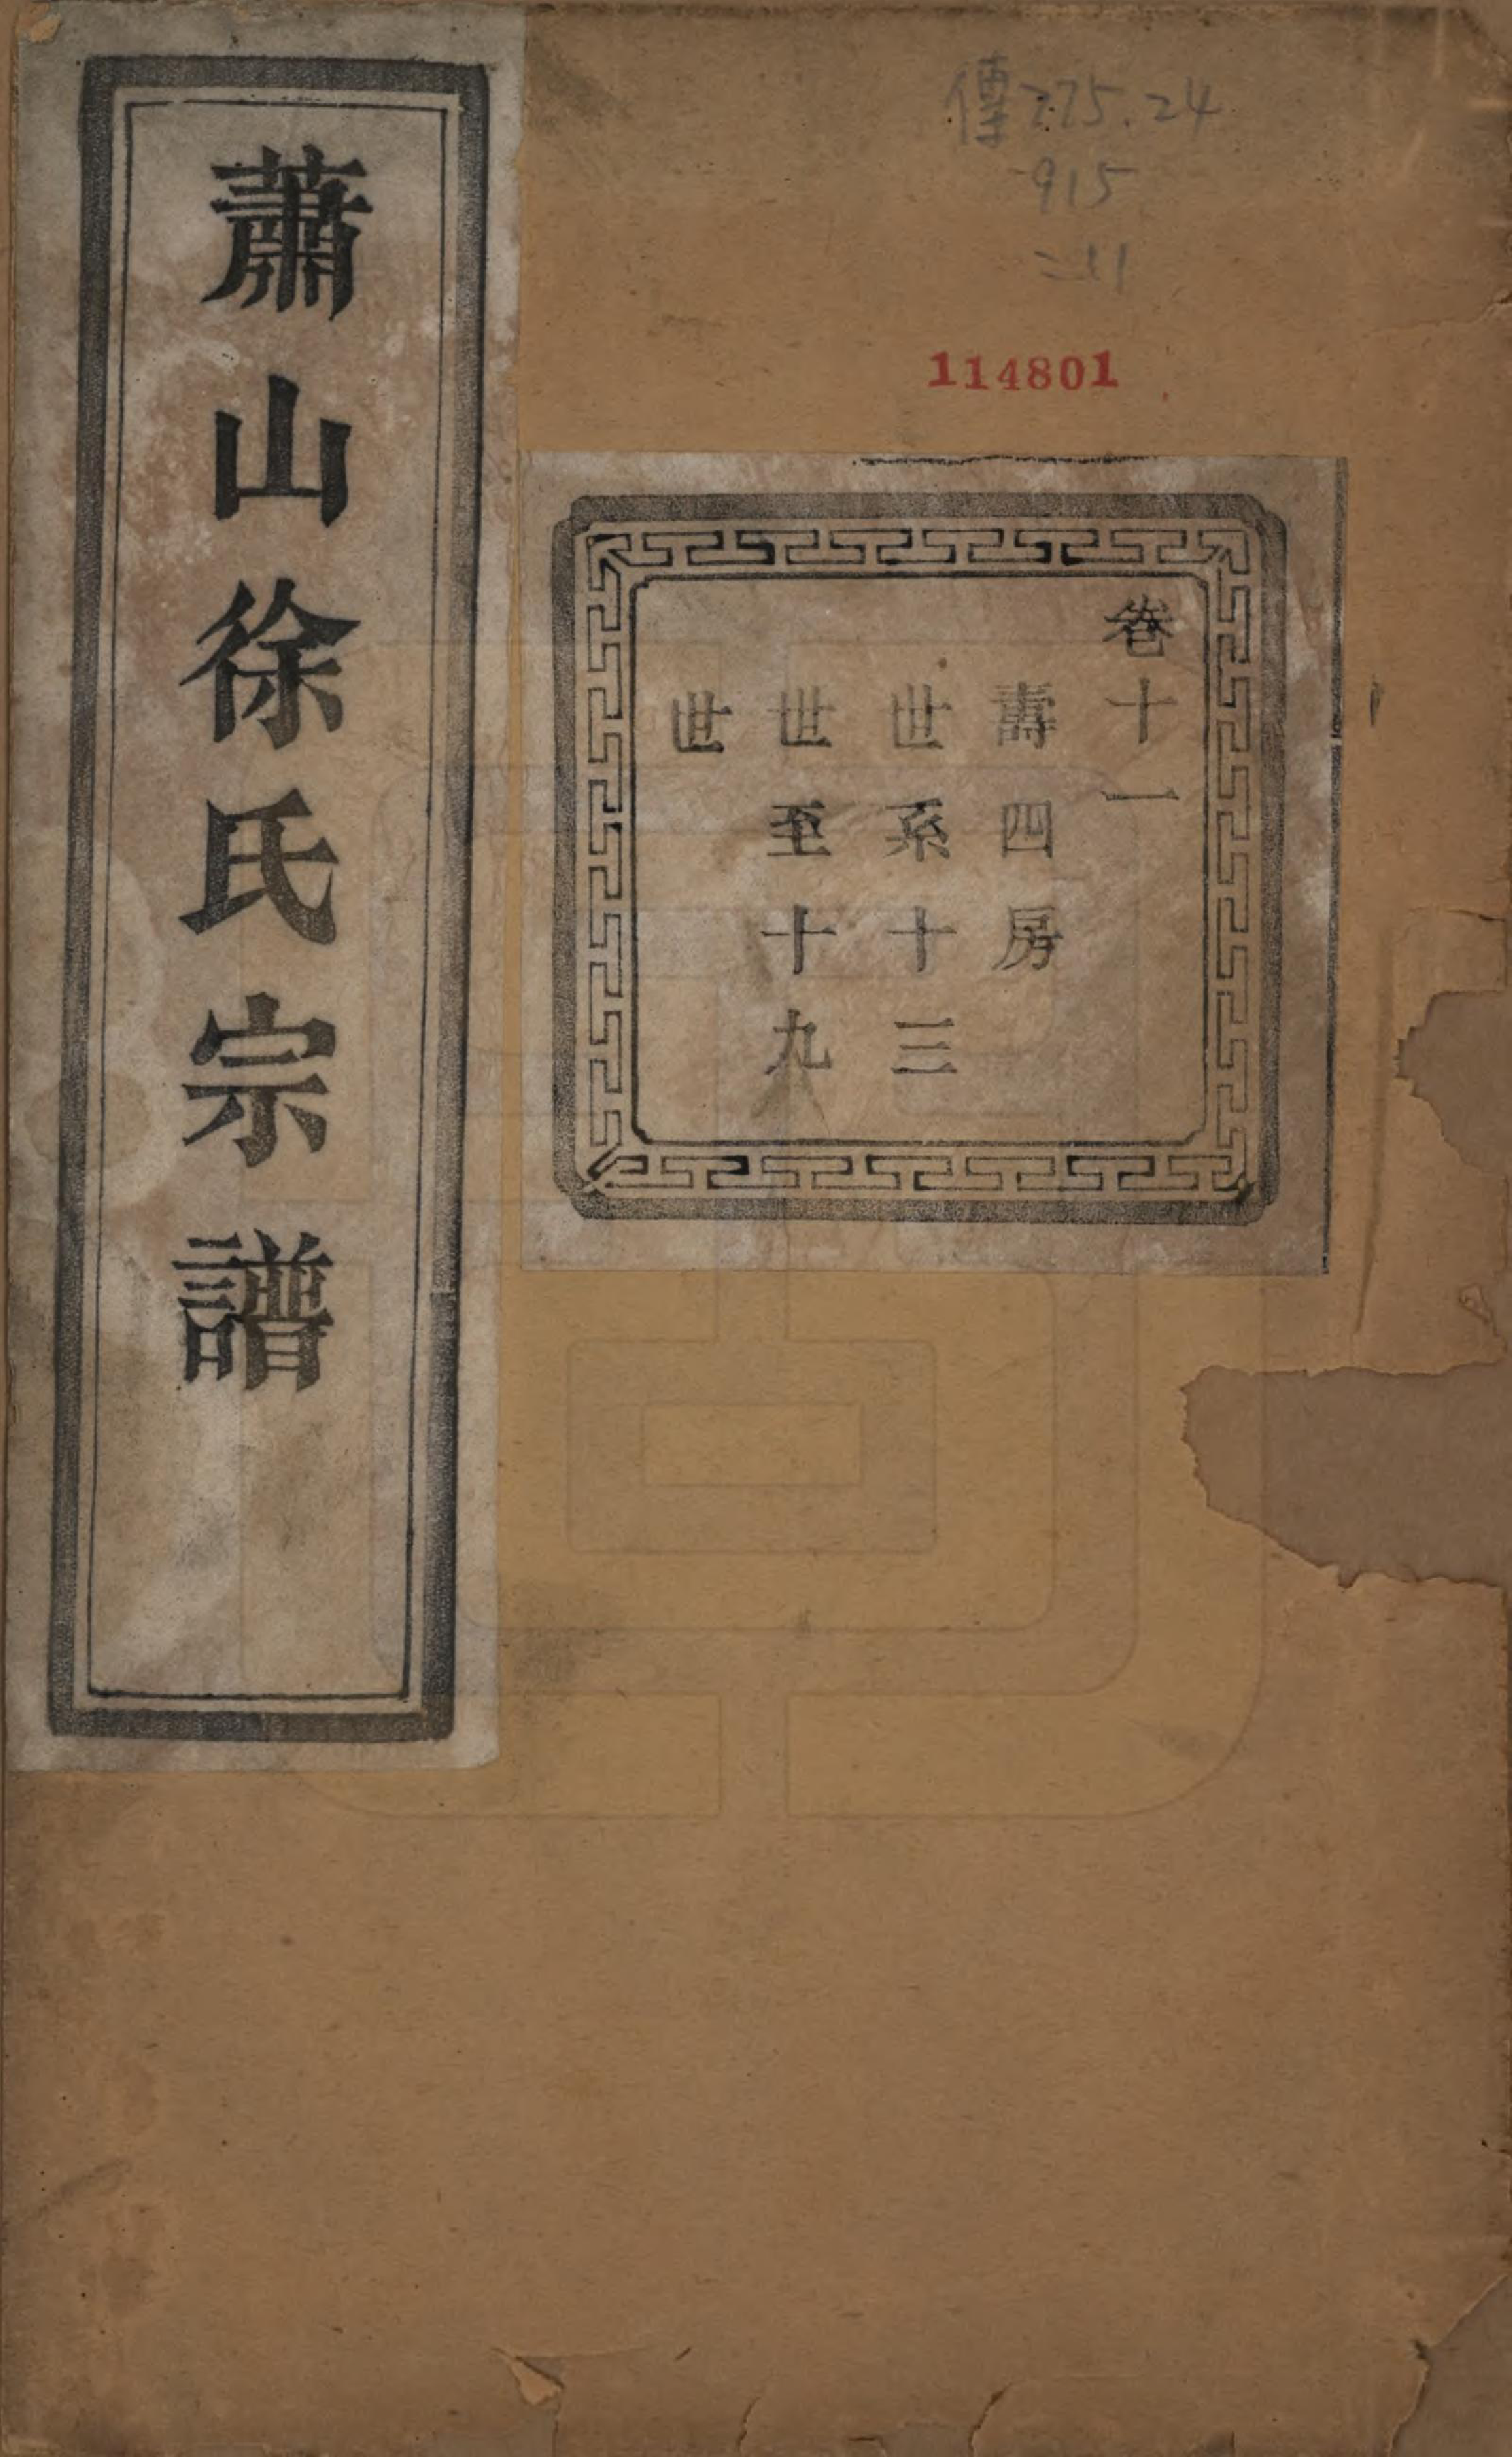 傳275.24
915
114801
卷十一
壽四房
世系十三
世至十九
世
蕭山徐氏宗譜